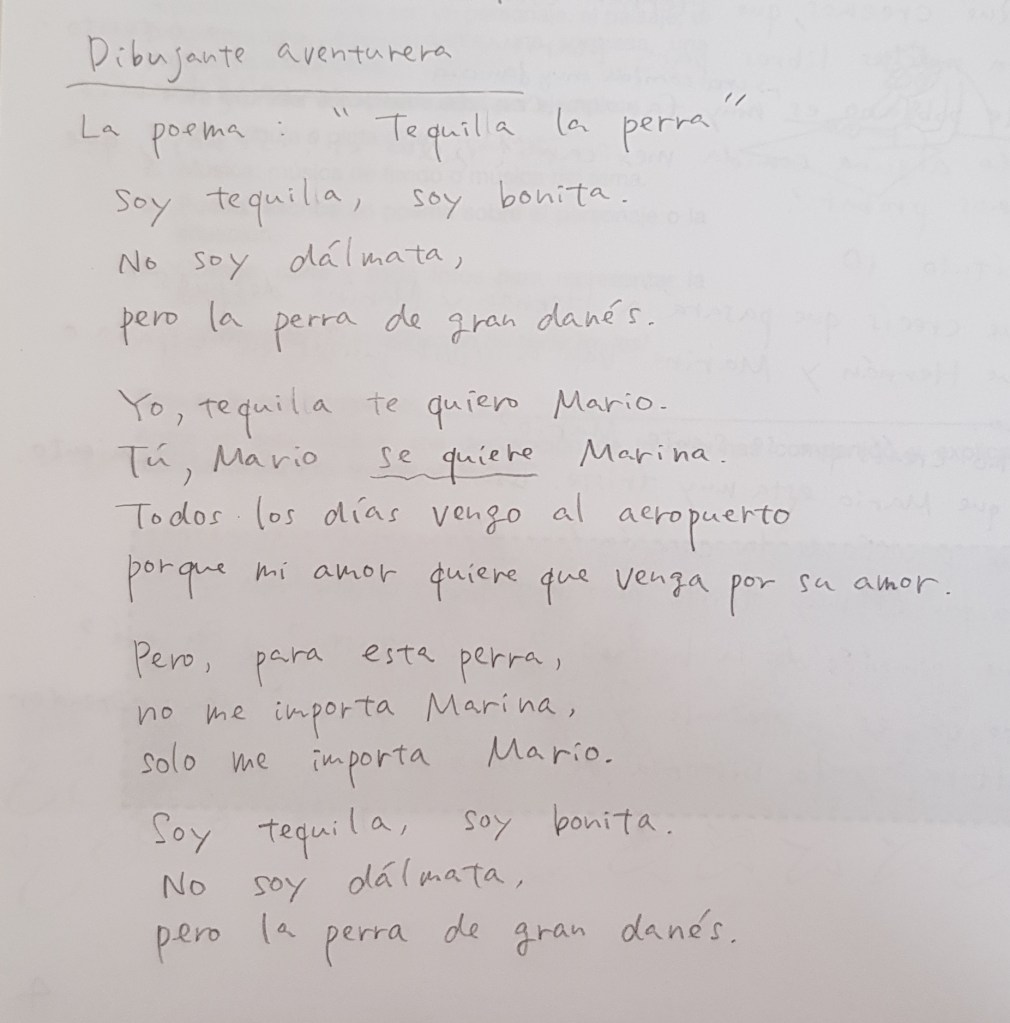 Dibujante aventurera
La poema : " Tequilla la perra "
Soy tequilla, soy bonita.
No soy dálmata,
pero la perra de gran danés.
Yo, tequila te quiero Mario.
Tú, Mario se quiere Marina.
Todos los días vengo al aeropuerto
porque mi amor quiere que venga por su amor.
Pero, para esta perra,
no me importa Marina,
solo me importa Mario.
Soy tequila, soy bonita.
No soy dálmata,
pero la perra de gran danés.